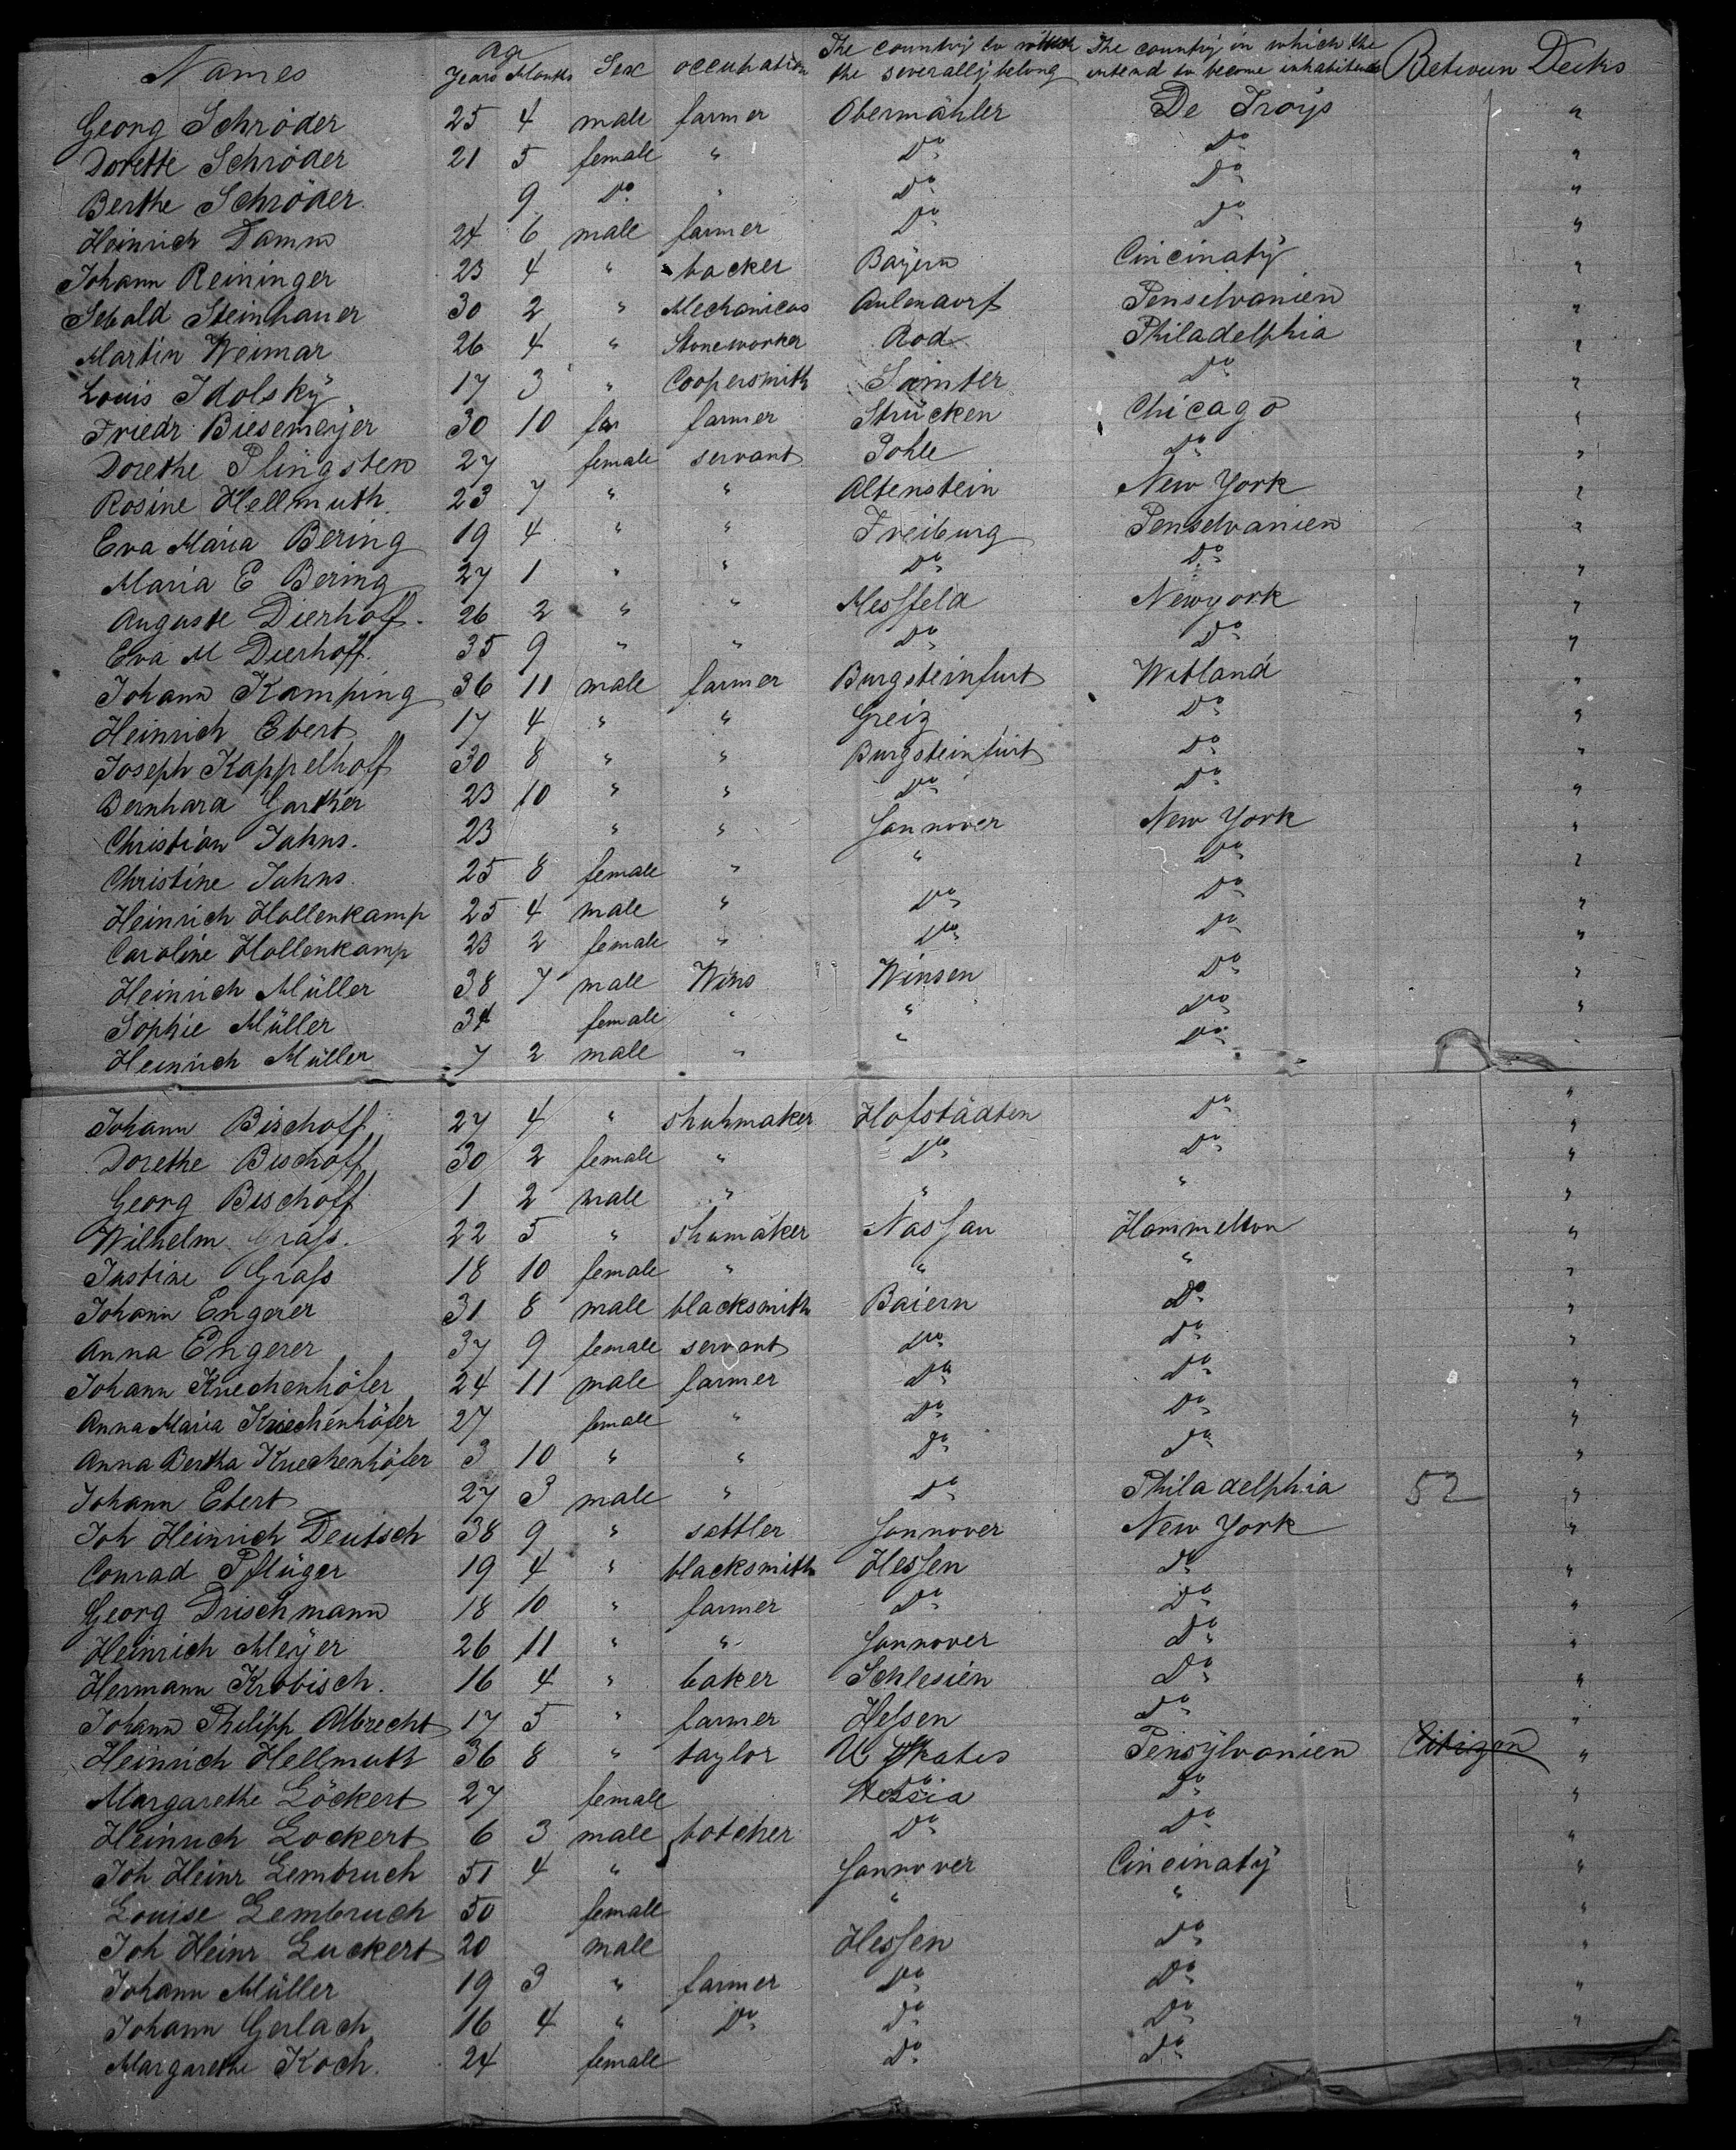 Names Age Years Months Sex occupation The country to which the severally belong The country in which the intend to become inhabitends Between Decks
Georg Schröder 25 4 male farmer Obermähler De Troys "
Dorette Schröder 21 5 female " Do Do "
Berthe Schröder 9 Do " Do Do "
Heinrich Damm 24 6 male farmer Do Do "
Johann Reininger 23 4 " backer Bayern Cincinaty "
Sebald Steinhauer 30 2 " Mechanicus Aulendorf Pensilvanien "
Martin Weimar 26 4 " Stoneworker Rod Philadelphia "
Louis Idolsky 17 3 " Coopersmith Samter Do "
Friedr Biesemeÿer 30 10 farmer Strücken Chicago "
Dorethe Plingsten 27 female servant Pohle Do "
Rosine Hellmuth 23 7 " " Altenstein New York "
Eva Maria Bering 19 4 " " Freiburg Penselvanien "
Maria E Bering 27 1 " " Do Do "
Auguste Dierhoff 26 2 " " Messfeld Newyork "
Eva M Dierhoff 35 9 " " Do Do "
Johann Kamping 36 11 male farmer Burgsteinfurt Wetland "
Heinrich Ebert 17 4 " " Greiz Do "
Joseph Kappelhoff 30 8 " " Burgsteinfurt Do "
Bernhard Garther 23 10 " " Do Do "
Christian Jahns 23 " " Hannover New York "
Christine Jahns 25 8 female " " Do "
Heinrich Hollenkamp 25 4 male " Do Do "
Caroline Hollenkamp 23 2 female " Do Do "
Heinrich Müller 38 7 male Wins Winsen Do "
Sophie Müller 34 female " " Do "
Heinrich Müller 7 2 male " " Do "
Johann Bischoff 27 4 " shuhmaker Hofstädten Do "
Dorethe Bischoff 30 2 female " Do Do "
Georg Bischoff 1 2 male " " " "
Wilhelm Grass 22 5 " shumaker Nassau Hammelton "
Justine Grass 18 10 female " " " "
Johann Engerer 31 8 male blacksmith Baiern Do "
Anna Engerer 37 9 female servant Do Do "
Johann Kriechenhöfer 24 11 male farmer Do Do "
Anna Maria Kriechenhöfer 27 female " Do Do "
Anna Bertha Kriechenhöfer 3 10 " " Do Do "
Johann Ebert 27 3 male " Do Philadelphia 52 "
Joh Heinrich Deutsch 38 9 " sattler Hannover New York "
Conrad Pflüger 19 4 " blacksmith Hessen Do "
Georg Drischmann 18 10 " farmer Do Do "
Heinrich Meÿer 26 11 " " Hannover Do "
Hermann Krobisch 16 4 " baker Schlesien Do "
Johann Philipp Albrecht 17 5 " farmer Hessen Do "
Heinrich Hellmuth 36 8 " taylor U States Pensÿlvanien Citizen "
Margarethe Löckert 27 female Hessia Do "
Heinrich Lockert 6 3 male botcher Do Do "
Joh Heinr Lembruch 51 4 " Hannover Cincinatÿ "
Louise Lembruch 50 female " " "
Joh Heinr Luckert 20 male Hessen Do "
Johann Müller 19 3 " farmer Do Do "
Johann Gerlach 16 4 " Do Do Do "
Margarethe Koch 24 female Do Do